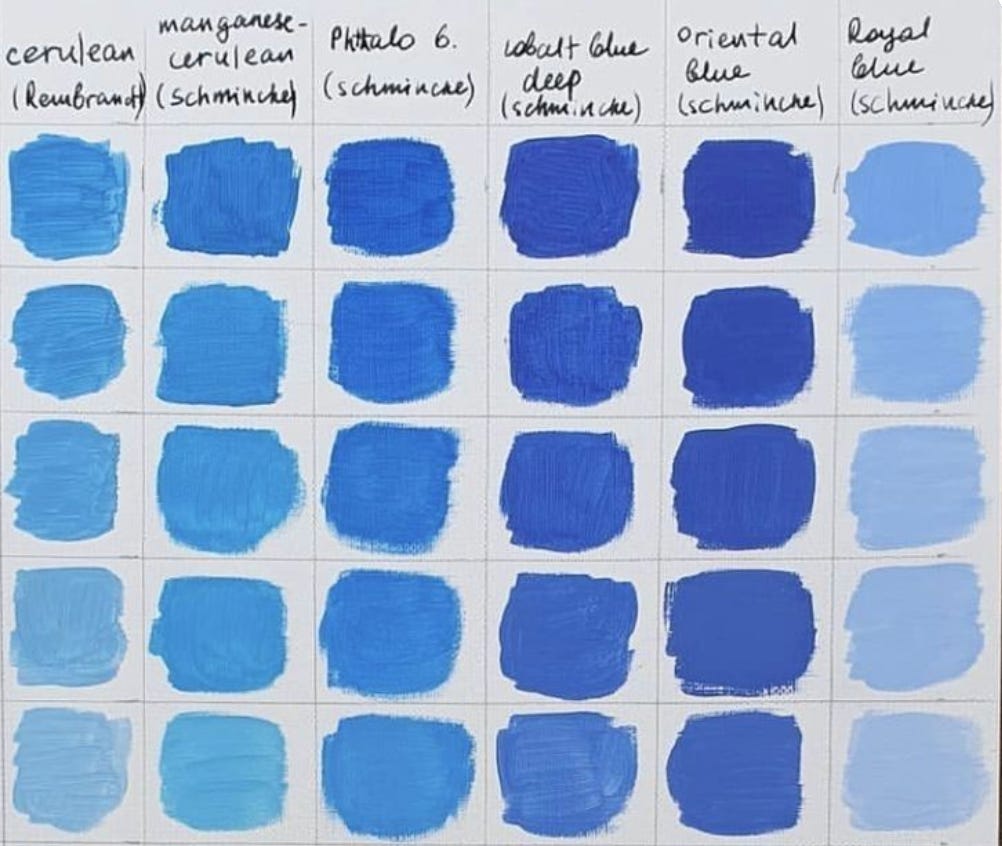 cerulean
(Rembrandt)
manganese-
cerulean
(schmincke)
Phthalo b.
(schmincke)
cobalt blue
deep
(schmincke)
oriental
Blue
(schmincke)
Royal
blue
(schmincke)